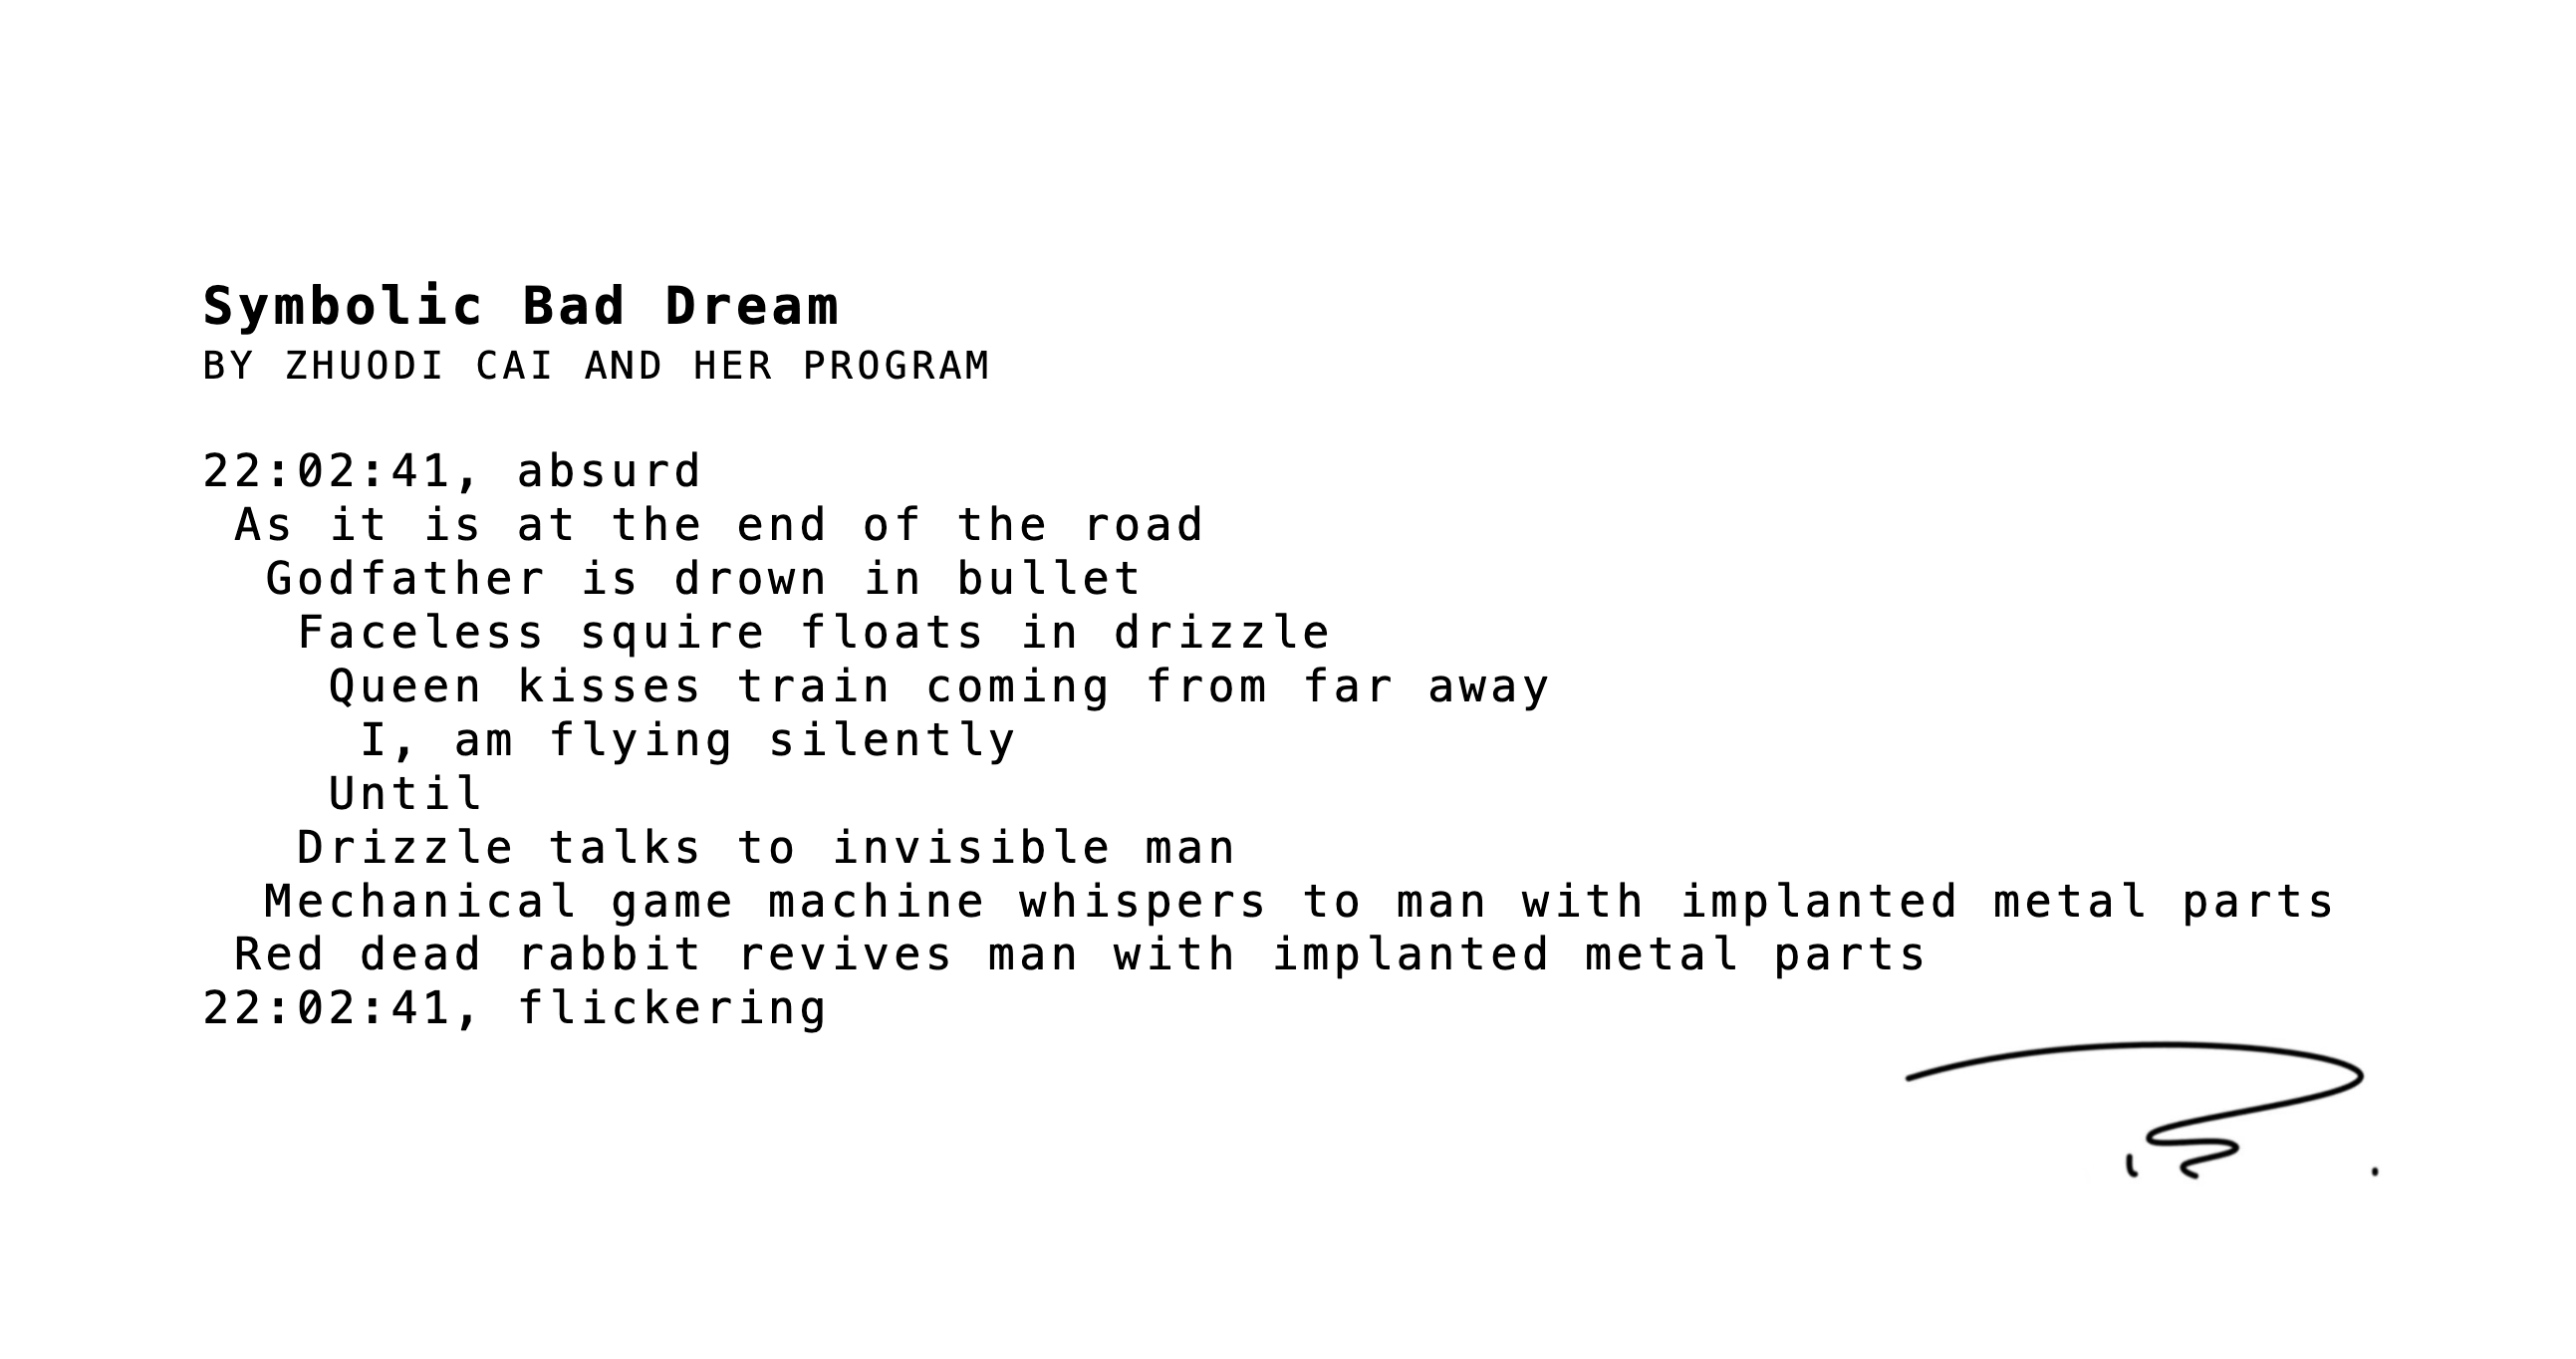 Symbolic Bad Dream
BY ZHUODI CAI AND HER PROGRAM
22:02:41, absurd
As it is at the end of the road
Godfather is drown in bullet
Faceless squire floats in drizzle
Queen kisses train coming from far away
I, am flying silently
Until
Drizzle talks to invisible man
Mechanical game machine whispers to man with implanted metal parts
Red dead rabbit revives man with implanted metal parts
22:02:41, flickering